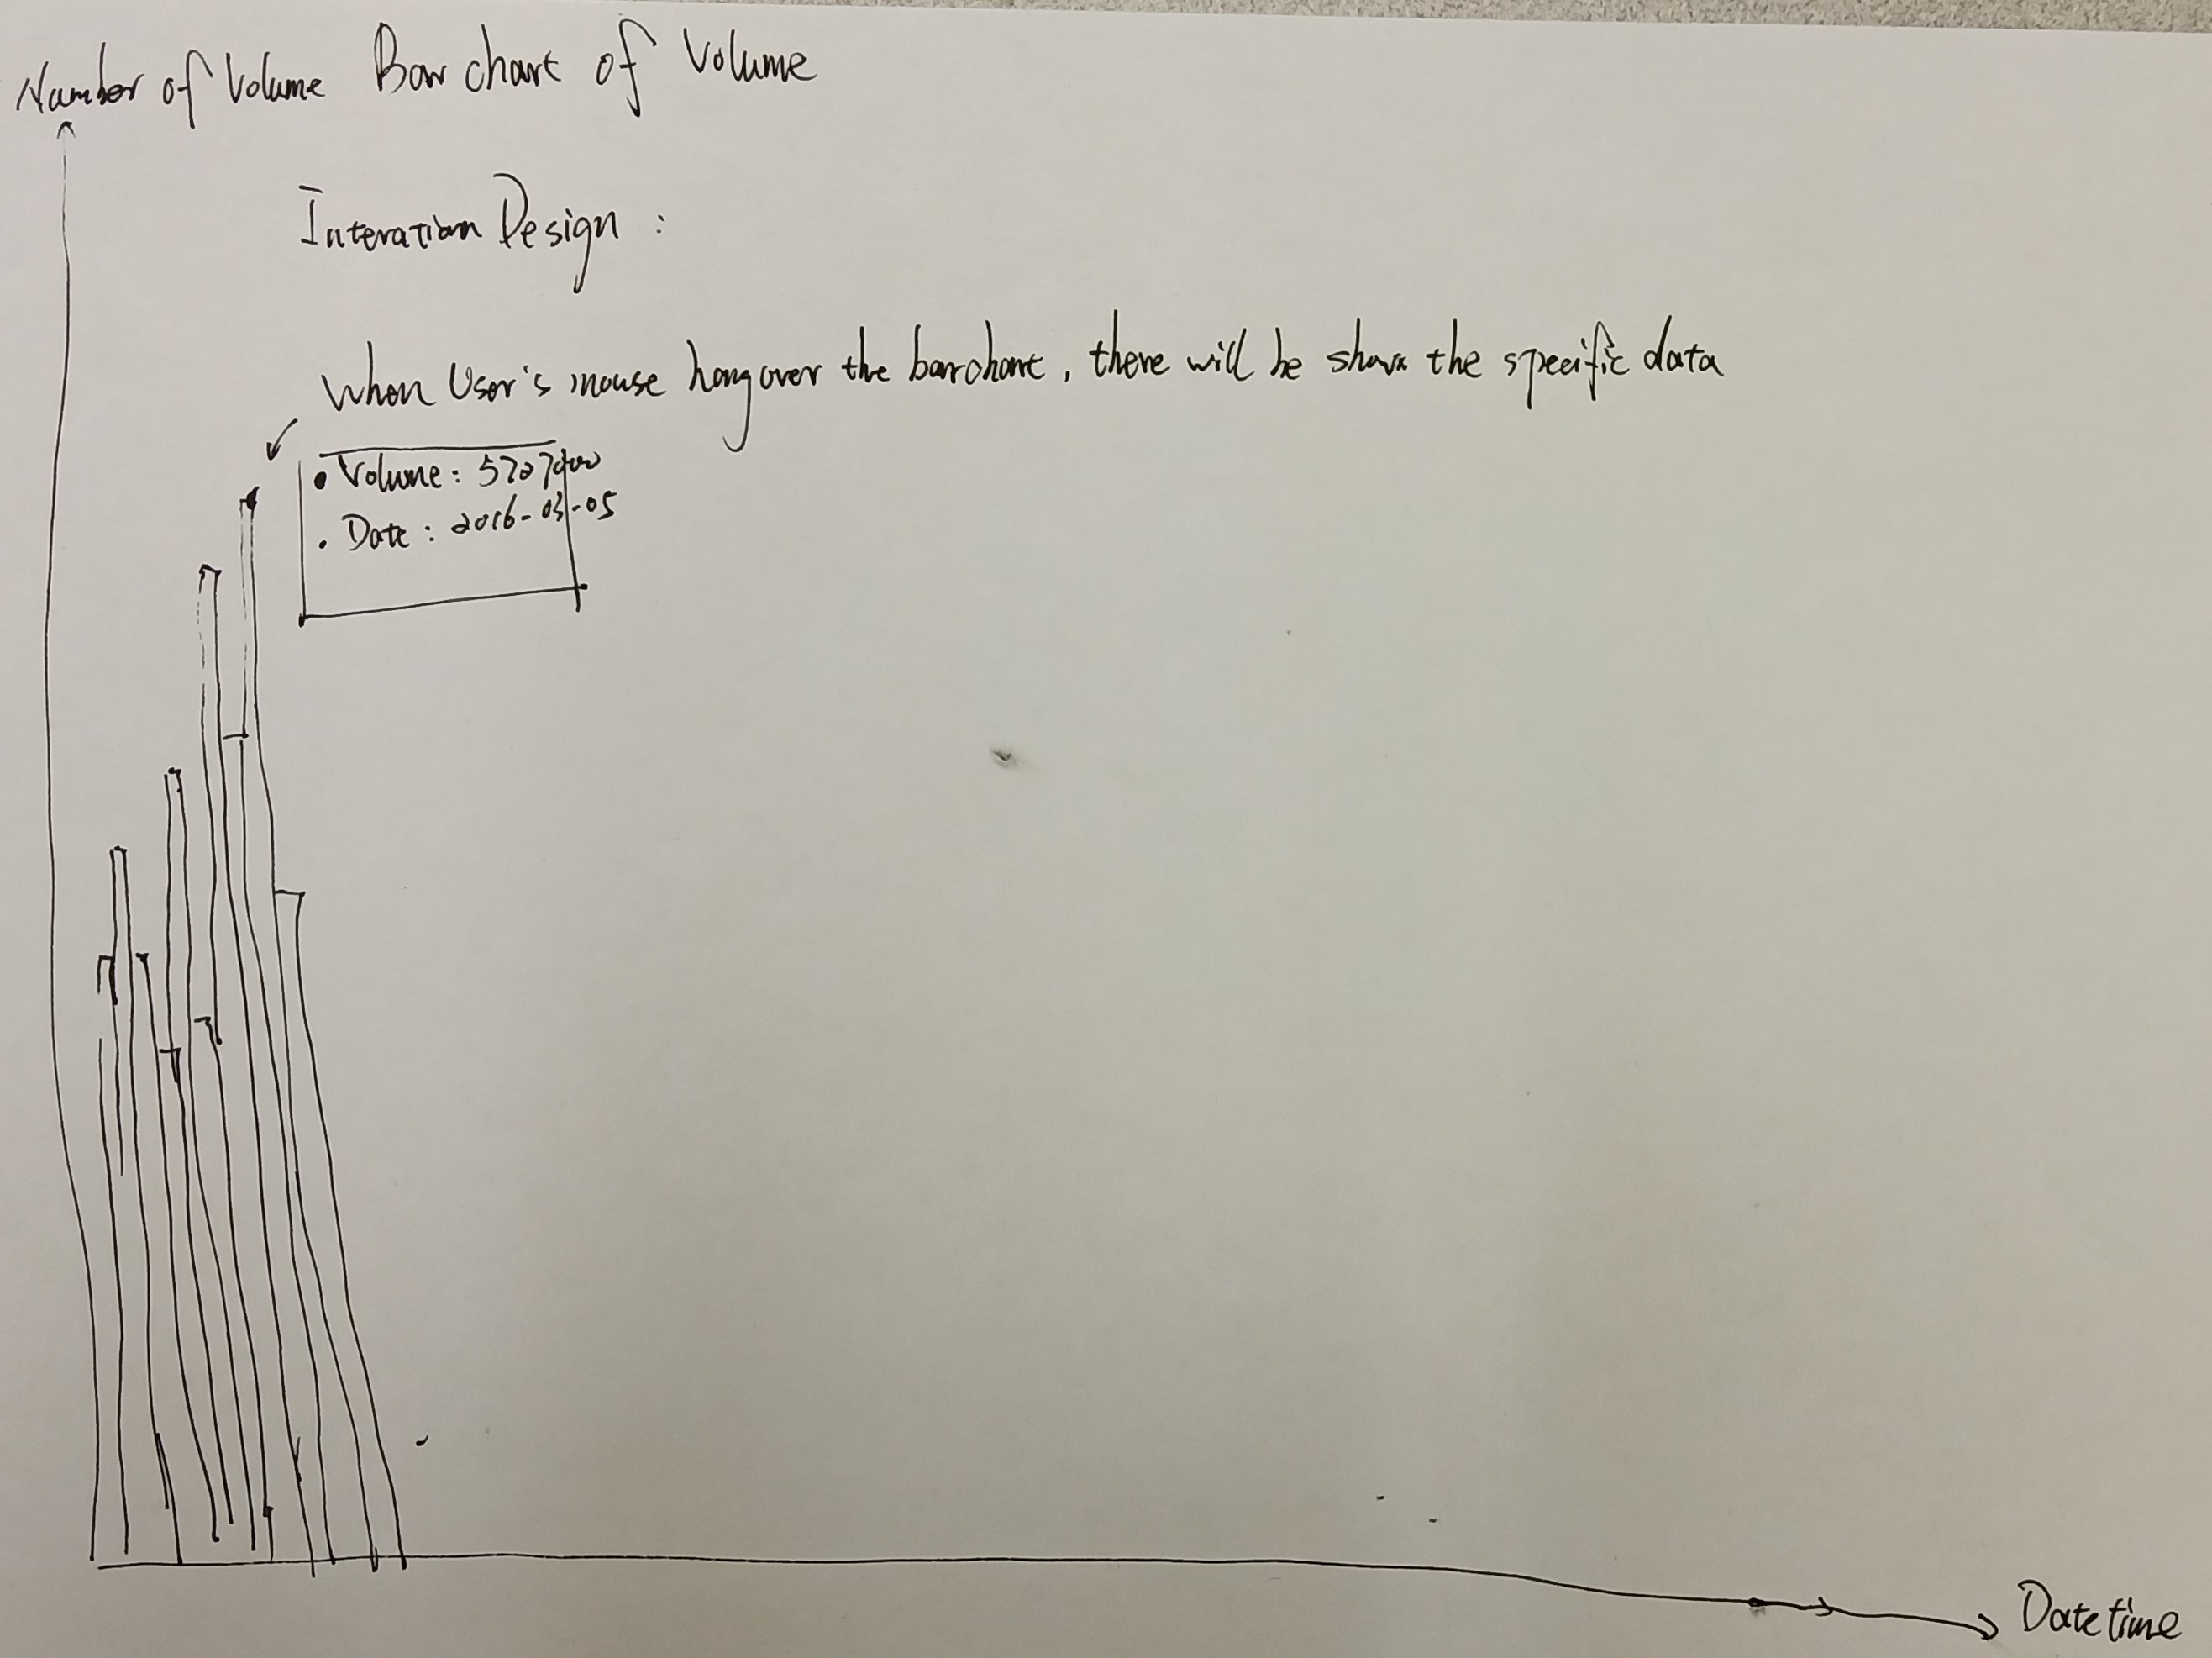 Number of Volume
Bar chart of Volume
Interation Design :
When User's mouse hangover the barchart, there will be shown the specific data
• Volume : 5727900
• Date : 2016-03-05
Datetime